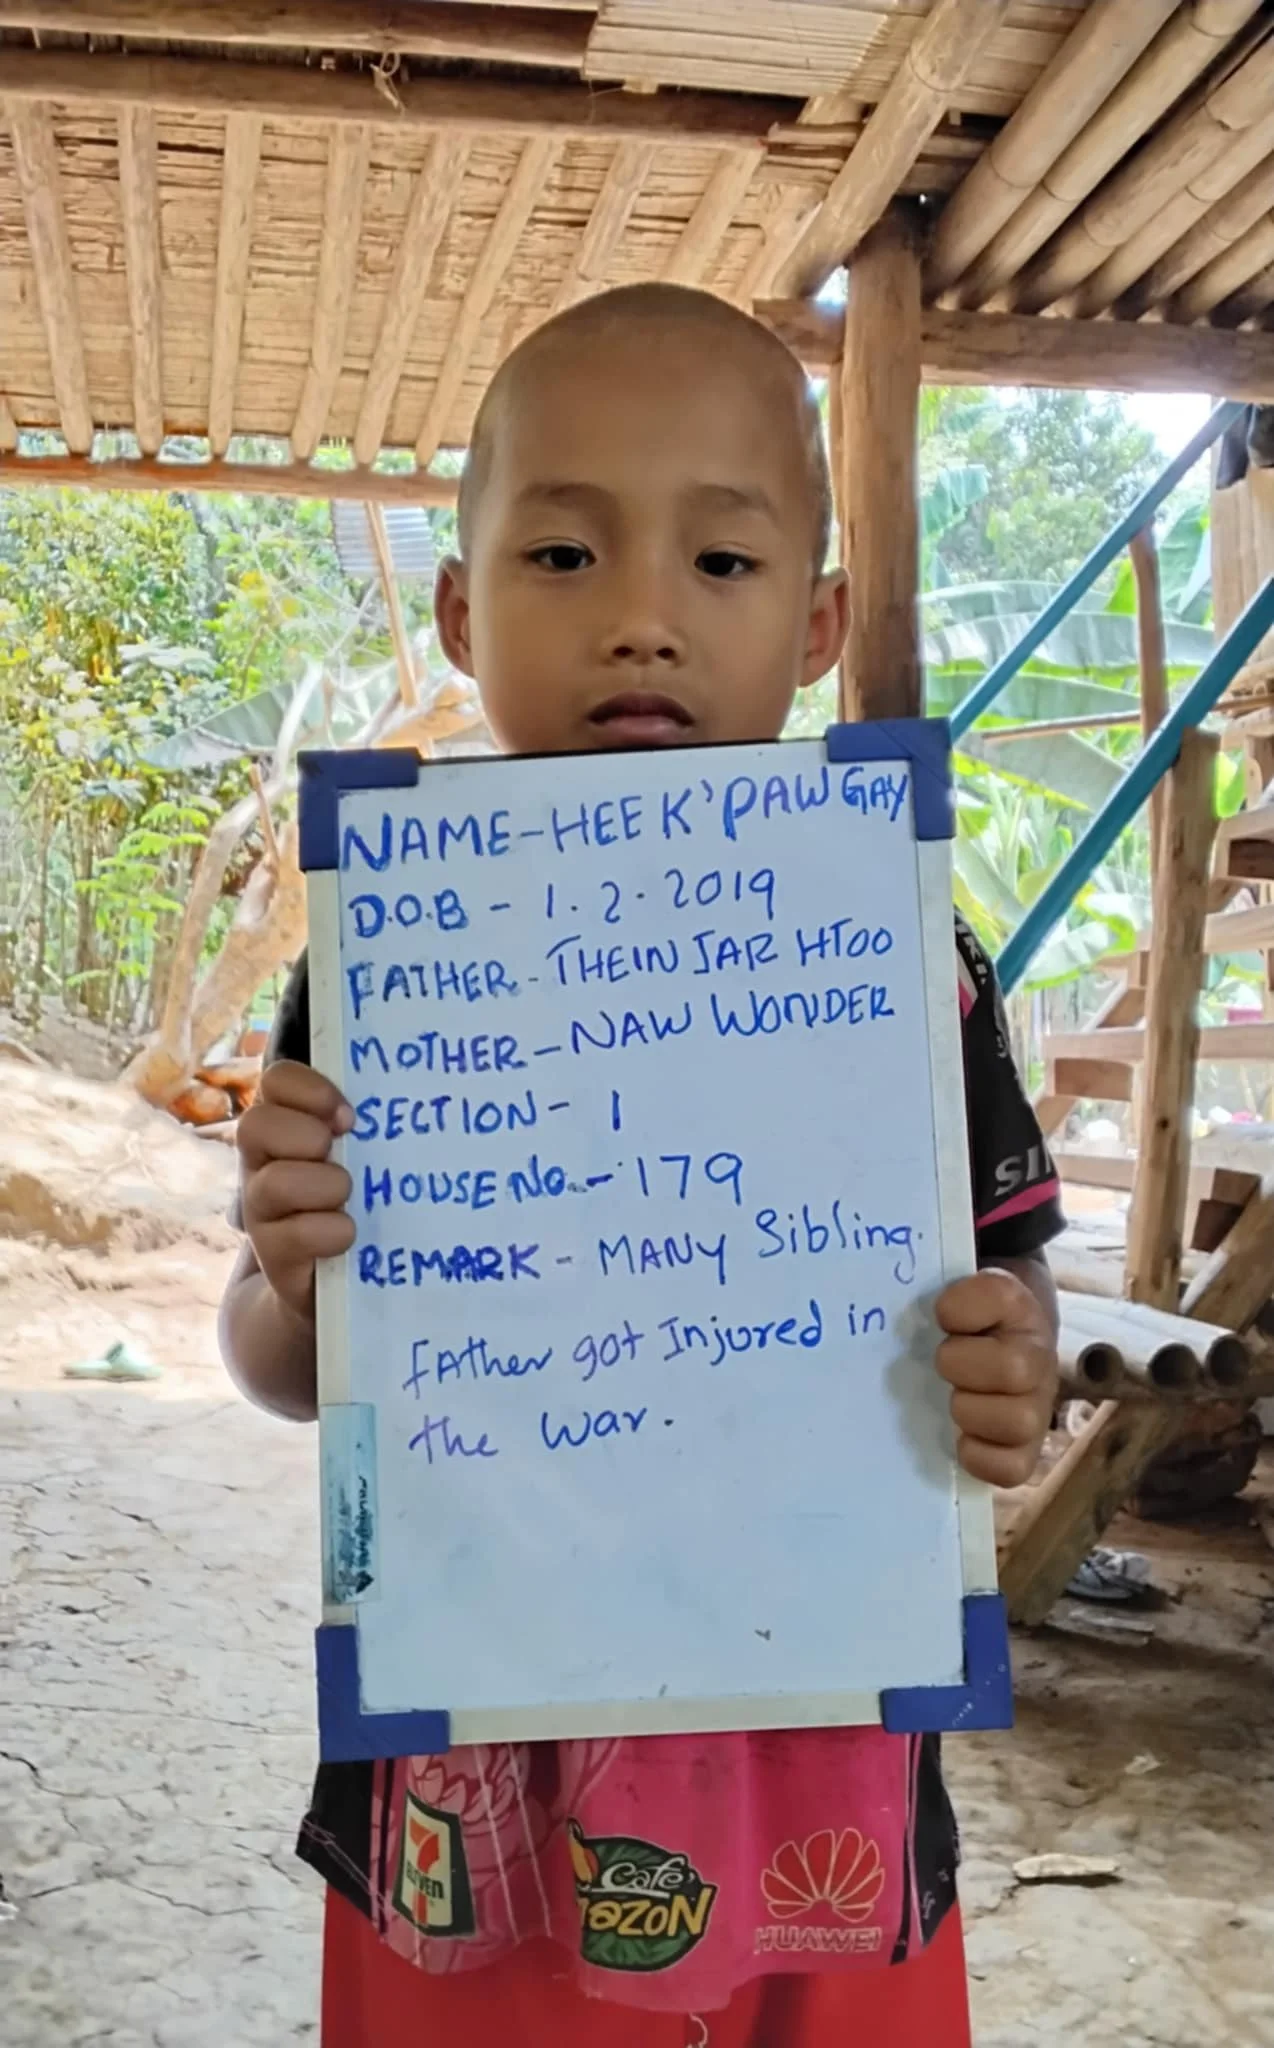 NAME-HEE K'PAW GAY
D.O.B - 1.2.2019
FATHER-THEIN JAR HTOO
MOTHER-NAW WONDER
SECTION- 1
HOUSE No.- 179
REMARK - MANY Sibling.
FAther got Injured in
the war.
7
ELEVEN
Café
HUAWEI